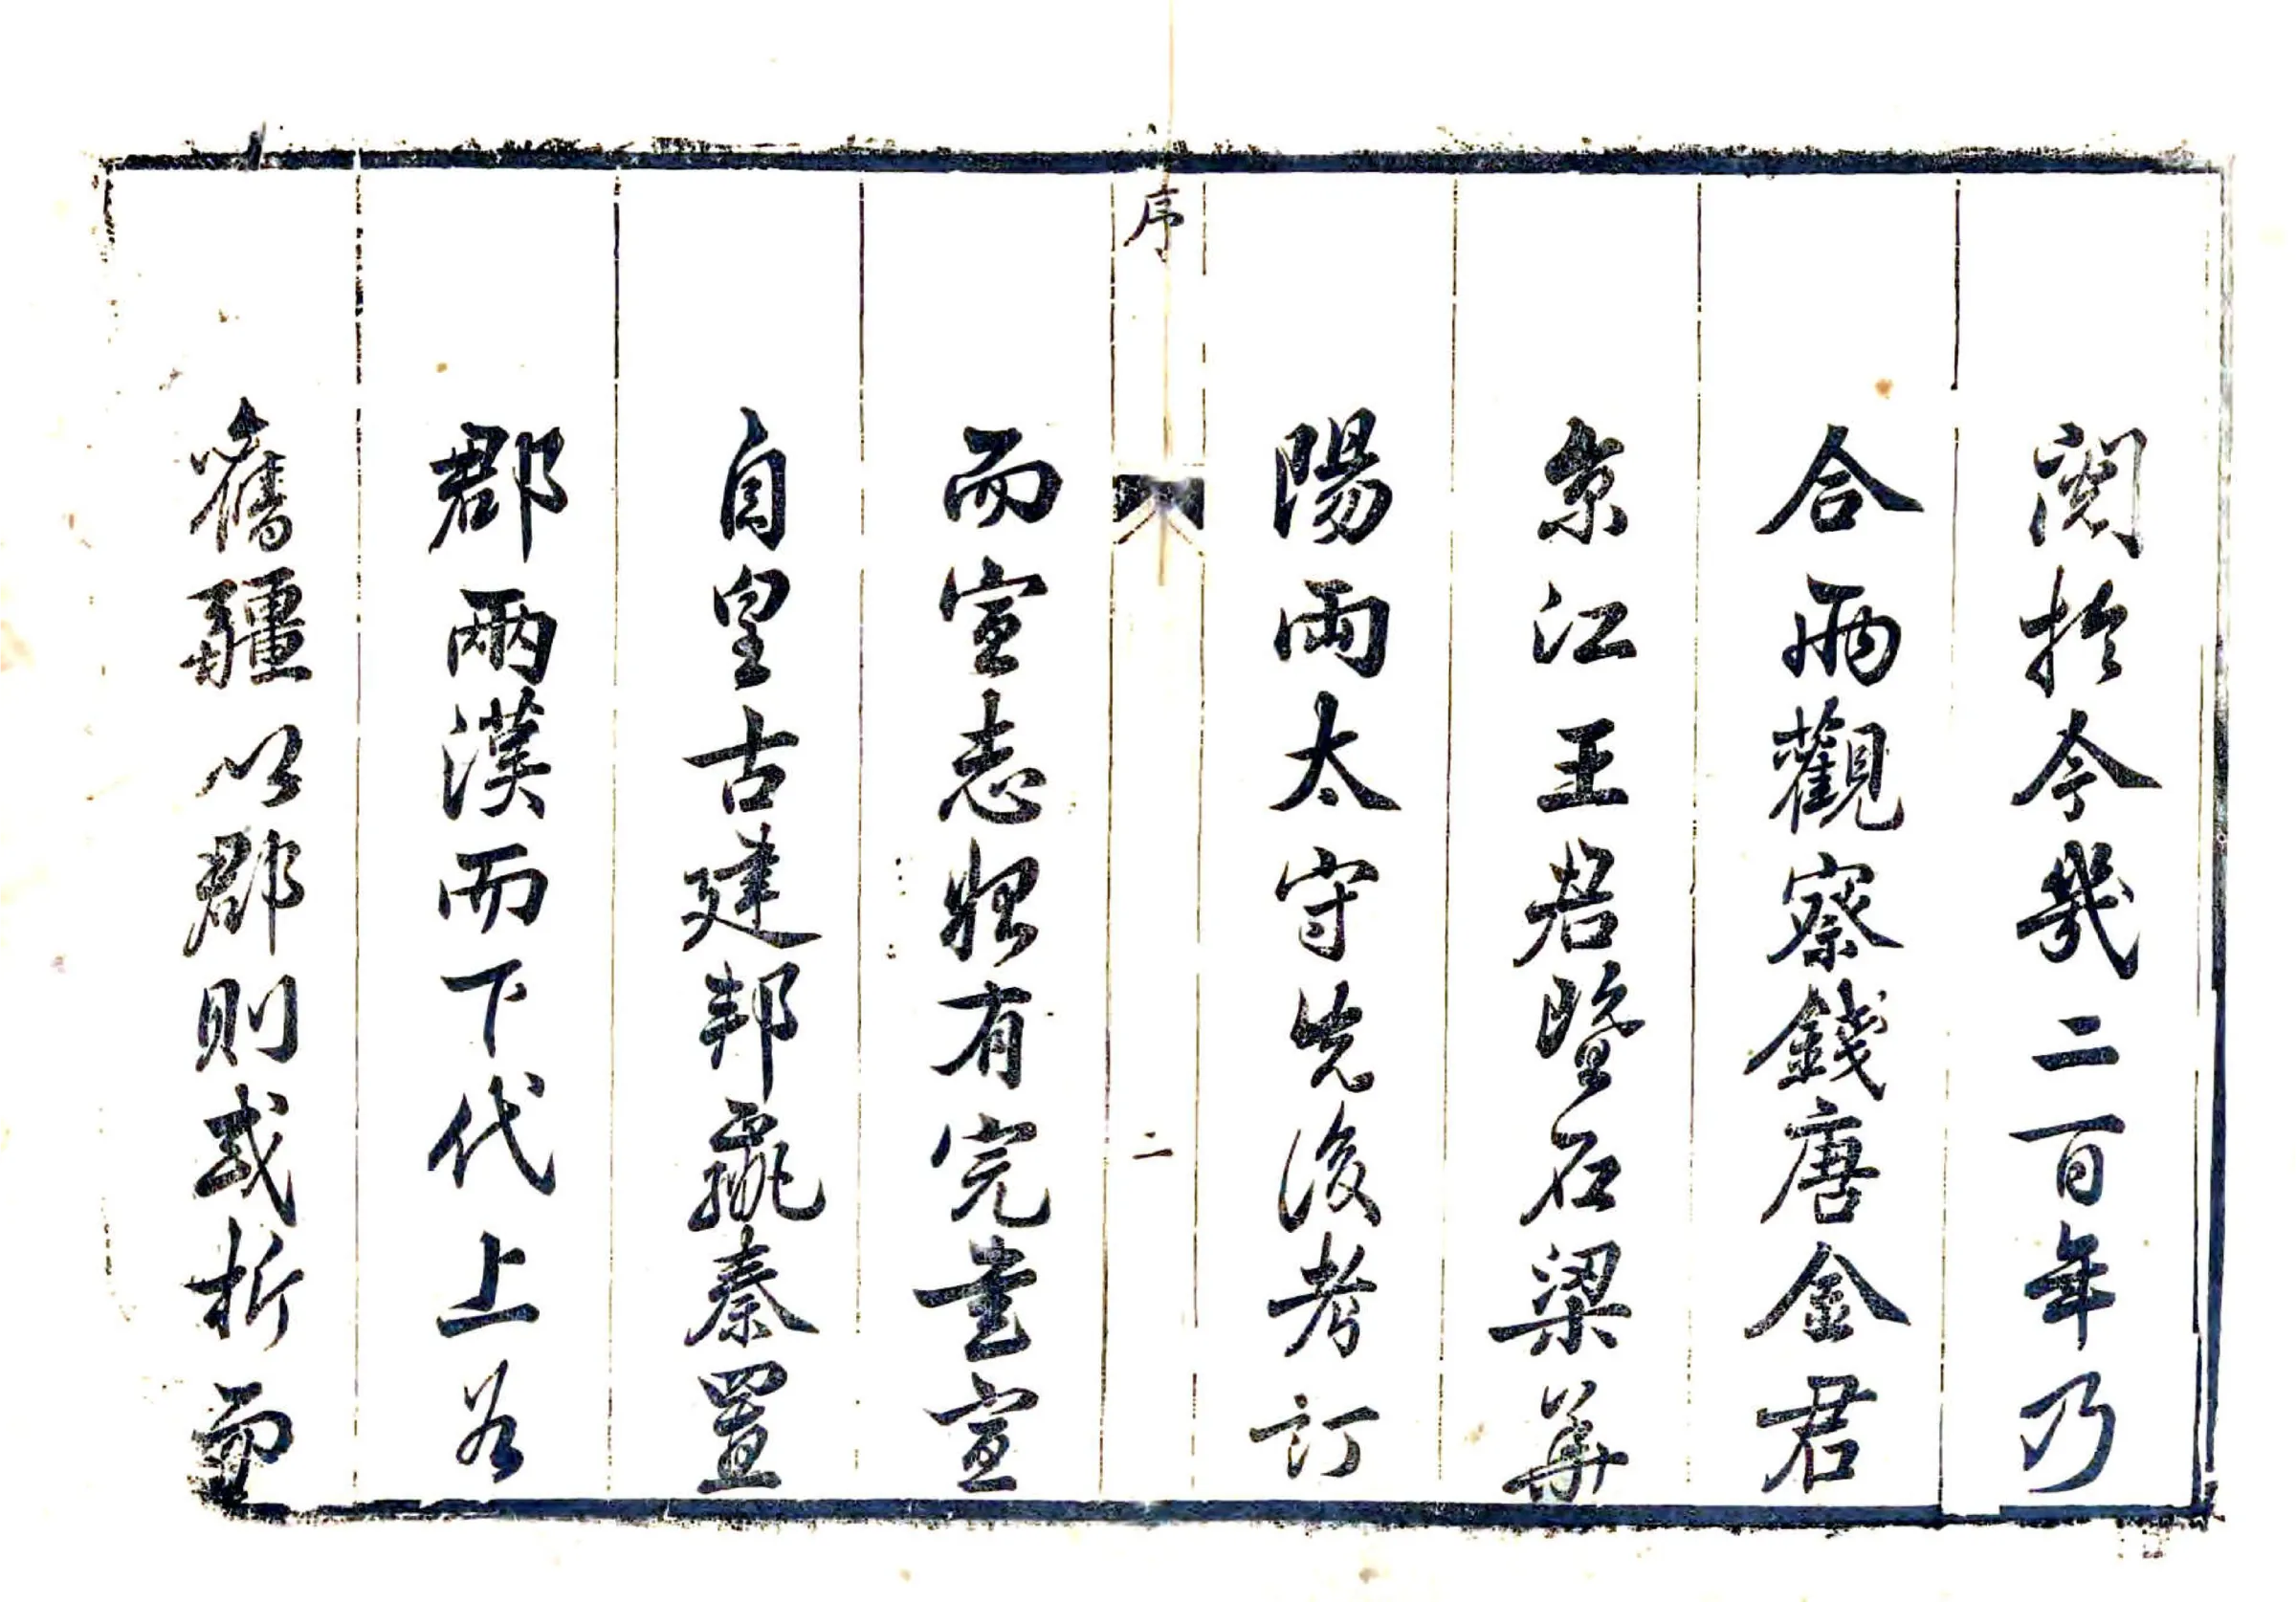 閱於今幾二百年乃
合兩觀察錢唐金君
京江王君暨石梁華
陽兩太守先後考訂
序
二
而宣志始有完書宣
自皇古建邦嬴秦置
郡兩漢而下代上谷
舊疆以郡則或析